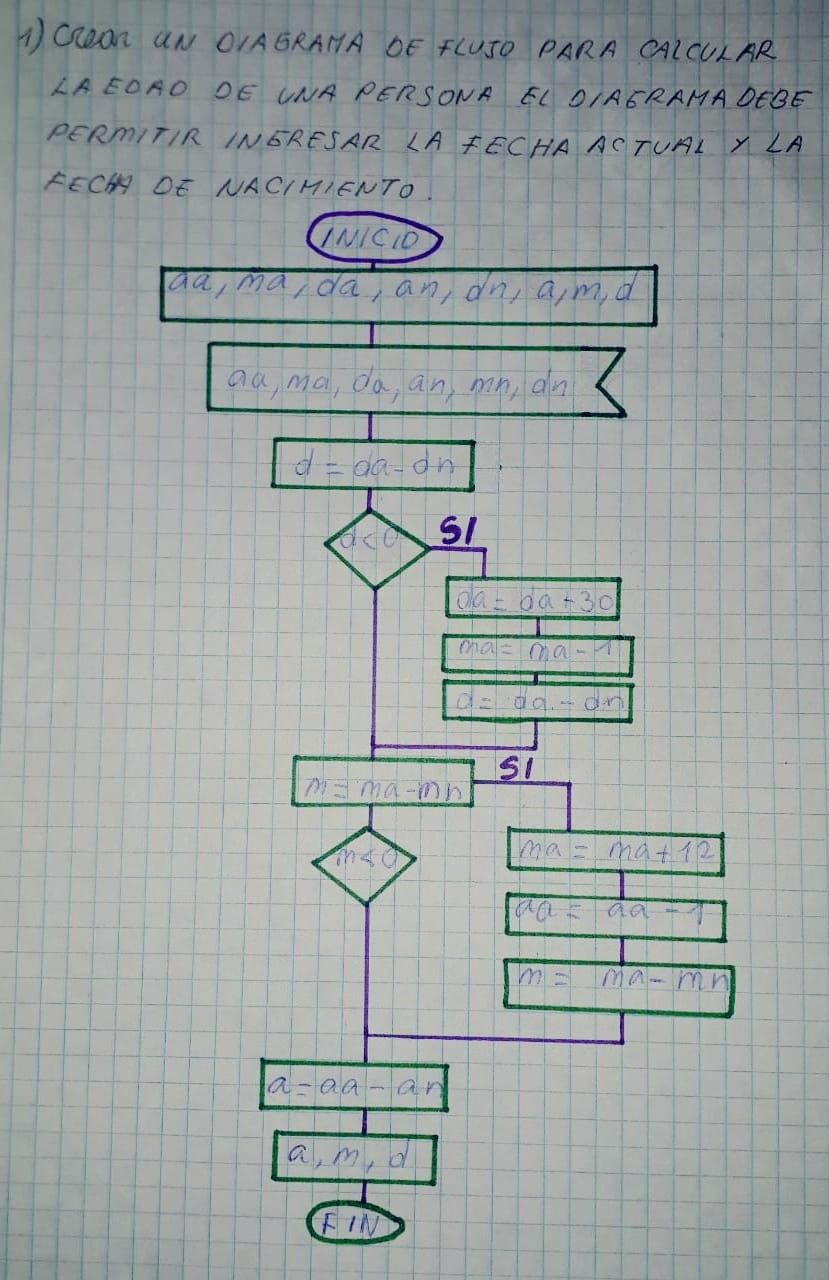 1) Crear UN DIAGRAMA DE FLUJO PARA CALCULAR
LA EDAD DE UNA PERSONA EL DIAGRAMA DEBE
PERMITIR INGRESAR LA FECHA ACTUAL Y LA
FECHA DE NACIMIENTO.
INICIO
aa, ma, da, an, dn, a, m, d
aa, ma, da, an, mn, dn
d = da - dn
d < 0
SI
da = da + 30
ma = ma - 1
d = da - dn
m = ma - mn
SI
m < 0
ma = ma + 12
aa = aa - 1
m = ma - mn
a = aa - an
a, m, d
FIN